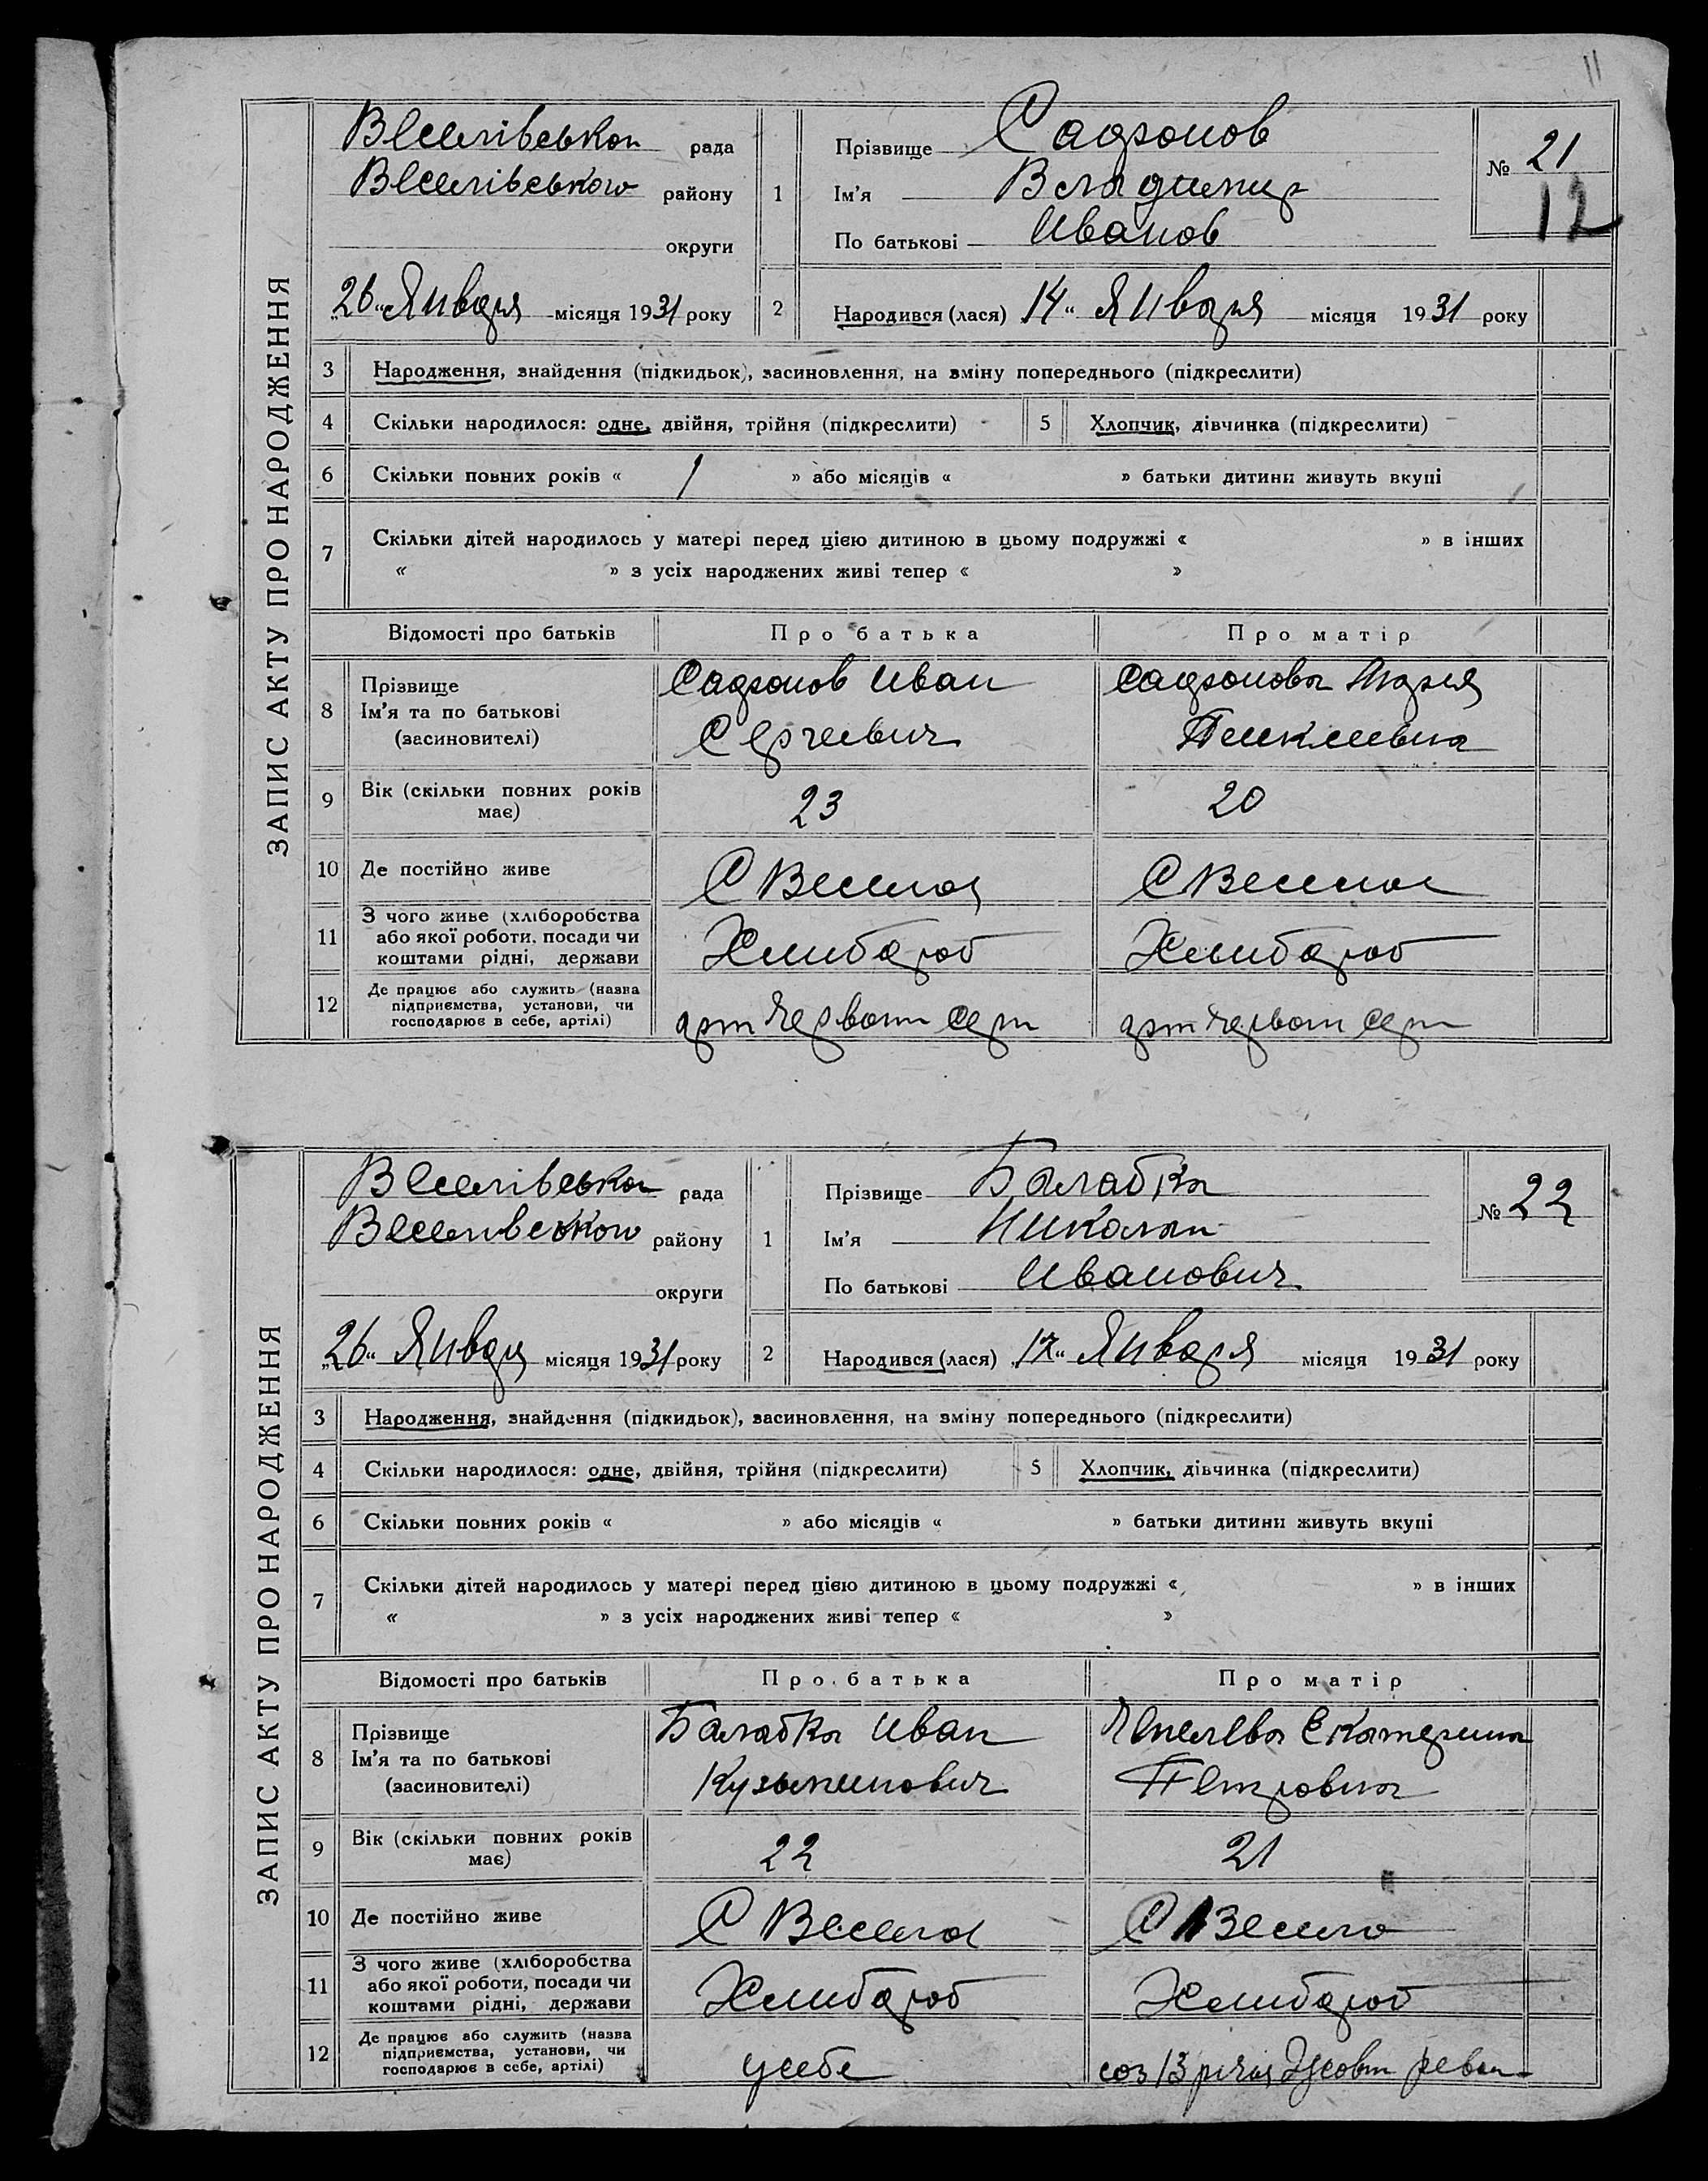 11
ЗАПИС АКТУ ПРО НАРОДЖЕННЯ
Веселівськои рада
Веселівського району
округи
„26“ Января місяця 1931 року
1
Прізвище Сафронов
Ім’я Владимир
По батькові Иванов
№ 21
12
2 Народився (лася) 14“ Января місяця 1931 року
3 Народження, знайдення (підкидьок), засиновлення, на зміну попереднього (підкреслити)
4 Скільки народилося: одне, двійня, трійня (підкреслити) 5 Хлопчик, дівчинка (підкреслити)
6 Скільки повних років « 1 » або місяців « » батьки дитини живуть вкупі
7 Скільки дітей народилось у матері перед цією дитиною в цьому подружжі « » в інших
« » з усіх народжених живі тепер « »
Відомості про батьків Про батька Про матір
8 Прізвище Ім’я та по батькові (засиновителі)
Сафронов Иван
Сергеевич
Сафронова Мария
9 Вік (скільки повних років має) 23 20
10 Де постійно живе С Весела С Весела
11 З чого живе (хліборобства або якої роботи, посади чи коштами рідні, держави Хлибароб Хлибароб
12 Де працює або служить (назва підприємства, установи, чи господарює в себе, артілі)
арт Червони Серп арт Червони Серп
ЗАПИС АКТУ ПРО НАРОДЖЕННЯ
Веселівська рада
Веселивського району
округи
„26“ Января місяця 1931 року
1
Прізвище Балабка
Ім’я Николаи
По батькові Иванович
№ 22
2 Народився (лася) „17“ Января місяця 1931 року
3 Народження, знайдення (підкидьок), засиновлення, на зміну попереднього (підкреслити)
4 Скільки народилося: одне, двійня, трійня (підкреслити) 5 Хлопчик, дівчинка (підкреслити)
6 Скільки повних років « » або місяців « » батьки дитини живуть вкупі
7 Скільки дітей народилось у матері перед цією дитиною в цьому подружжі « » в інших
« » з усіх народжених живі тепер « »
Відомості про батьків Про батька Про матір
8 Прізвище Ім’я та по батькові (засиновителі)
Балабка Иван
Кузьминович
Екатерина
Петровна
9 Вік (скільки повних років має) 22 21
10 Де постійно живе С Весела С Весело
11 З чого живе (хліборобства або якої роботи, посади чи коштами рідні, держави Хлибароб Хлибароб
12 Де працює або служить (назва підприємства, установи, чи господарює в себе, артілі)
усебе соз 13 річчя